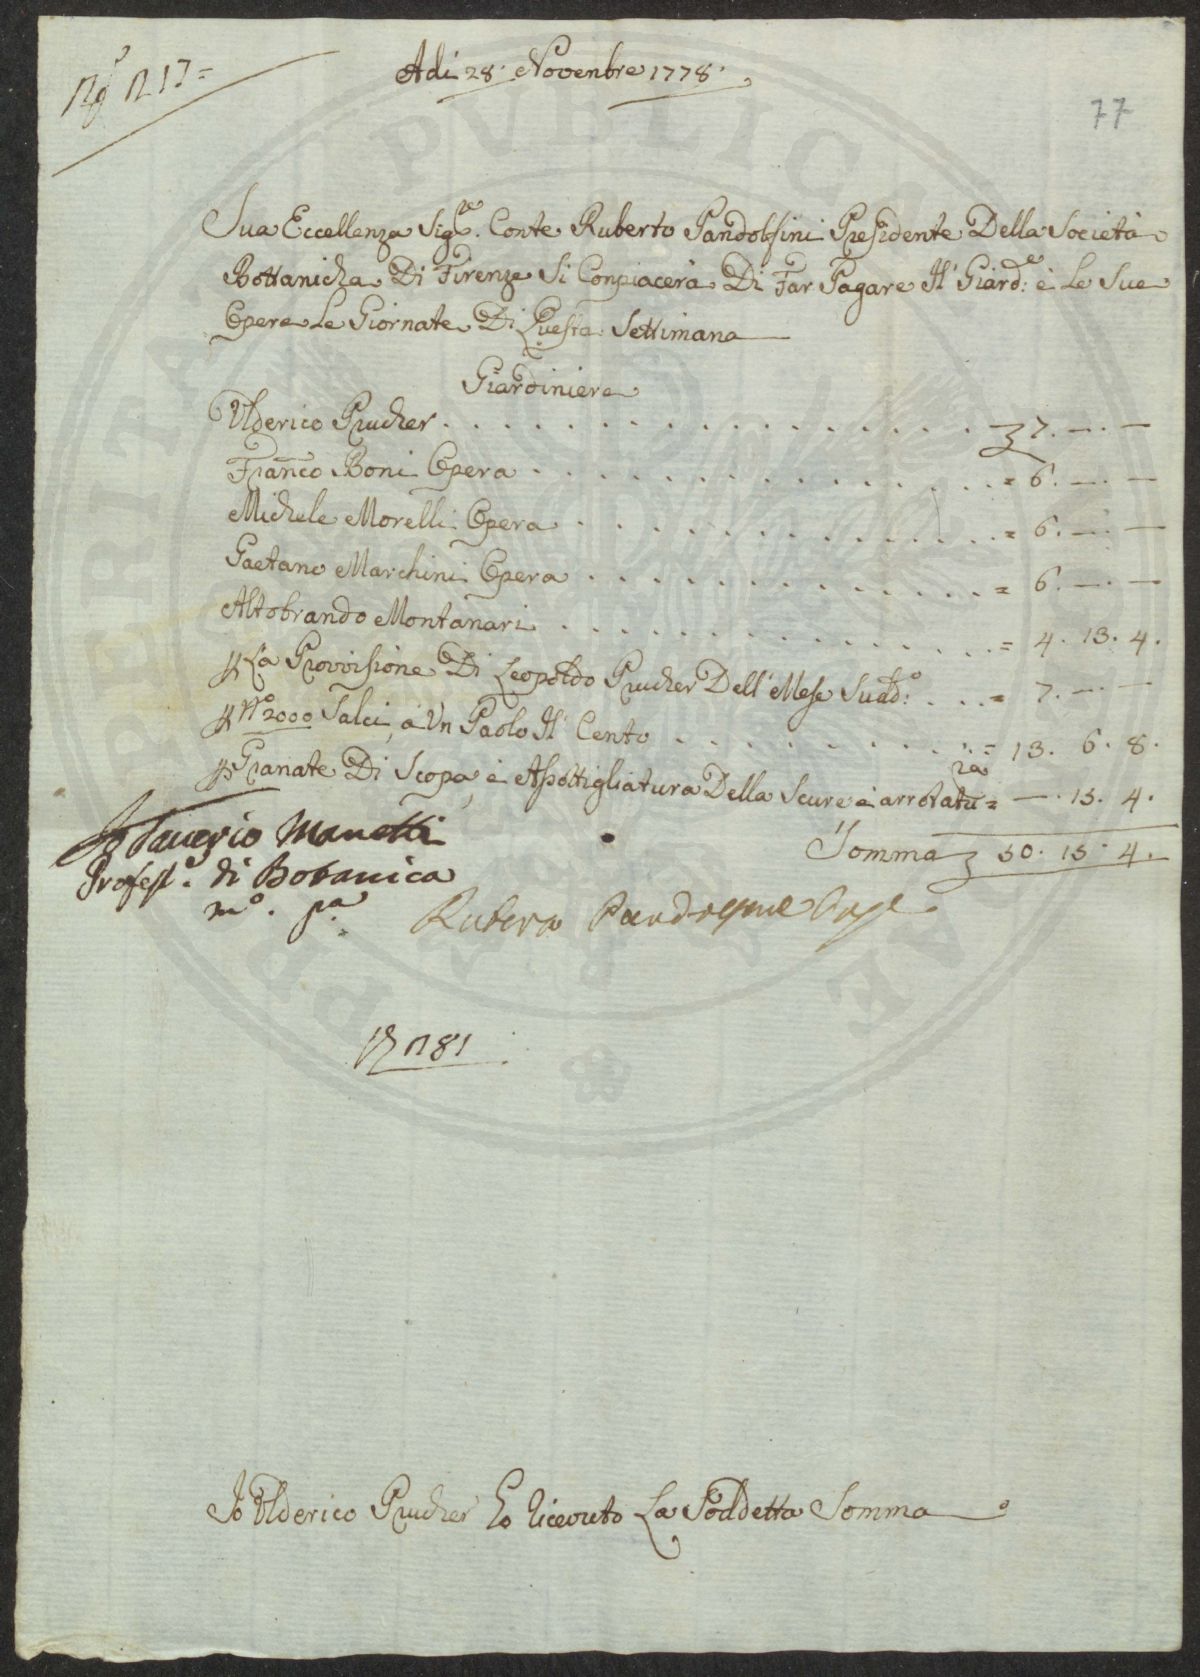 Adi 28. Novenbre 1778.
77
Sua Eccellenza Sig.re Conte Ruberto Pandolfini Presidente Della Società
Bottanicha Di Firenze Si Conpiacerà Di Far Pagare Il Giard.e è Le Sue
Opere Le Giornate Di Questa Settimana
Giardiniere
Ulderico Prucher . . . . . . . . . . . . . . . . . . 7. — . —
Franco Boni Opera . . . . . . . . . . . . . . . = 6. — . —
Michele Morelli Opera . . . . . . . . . . . . . = 6. — . —
Gaetano Marchini Opera . . . . . . . . . . . . = 6. — . —
Altobrando Montanari . . . . . . . . . . . . . = 4. 13. 4.
La Provvisione Di Leopoldo Prucher Dell' Mese Sud.o . . . = 7. — . —
N.o 2000 Salci, à Un Paolo Il Cento . . . . . . . . . . = 13. 6. 8.
ra
Granate Di Scopa, è Assottigliatura Della Scure è arrotatu = — . 15. 4.
Somma 50. 15. 4.
Saverio Manetti
Profess.e di Botanica
m.o p.a
Pandolfini
n 81
Io Ulderico Prucher Ho Ricevuto La Soddetta Somma
PVBLICAE